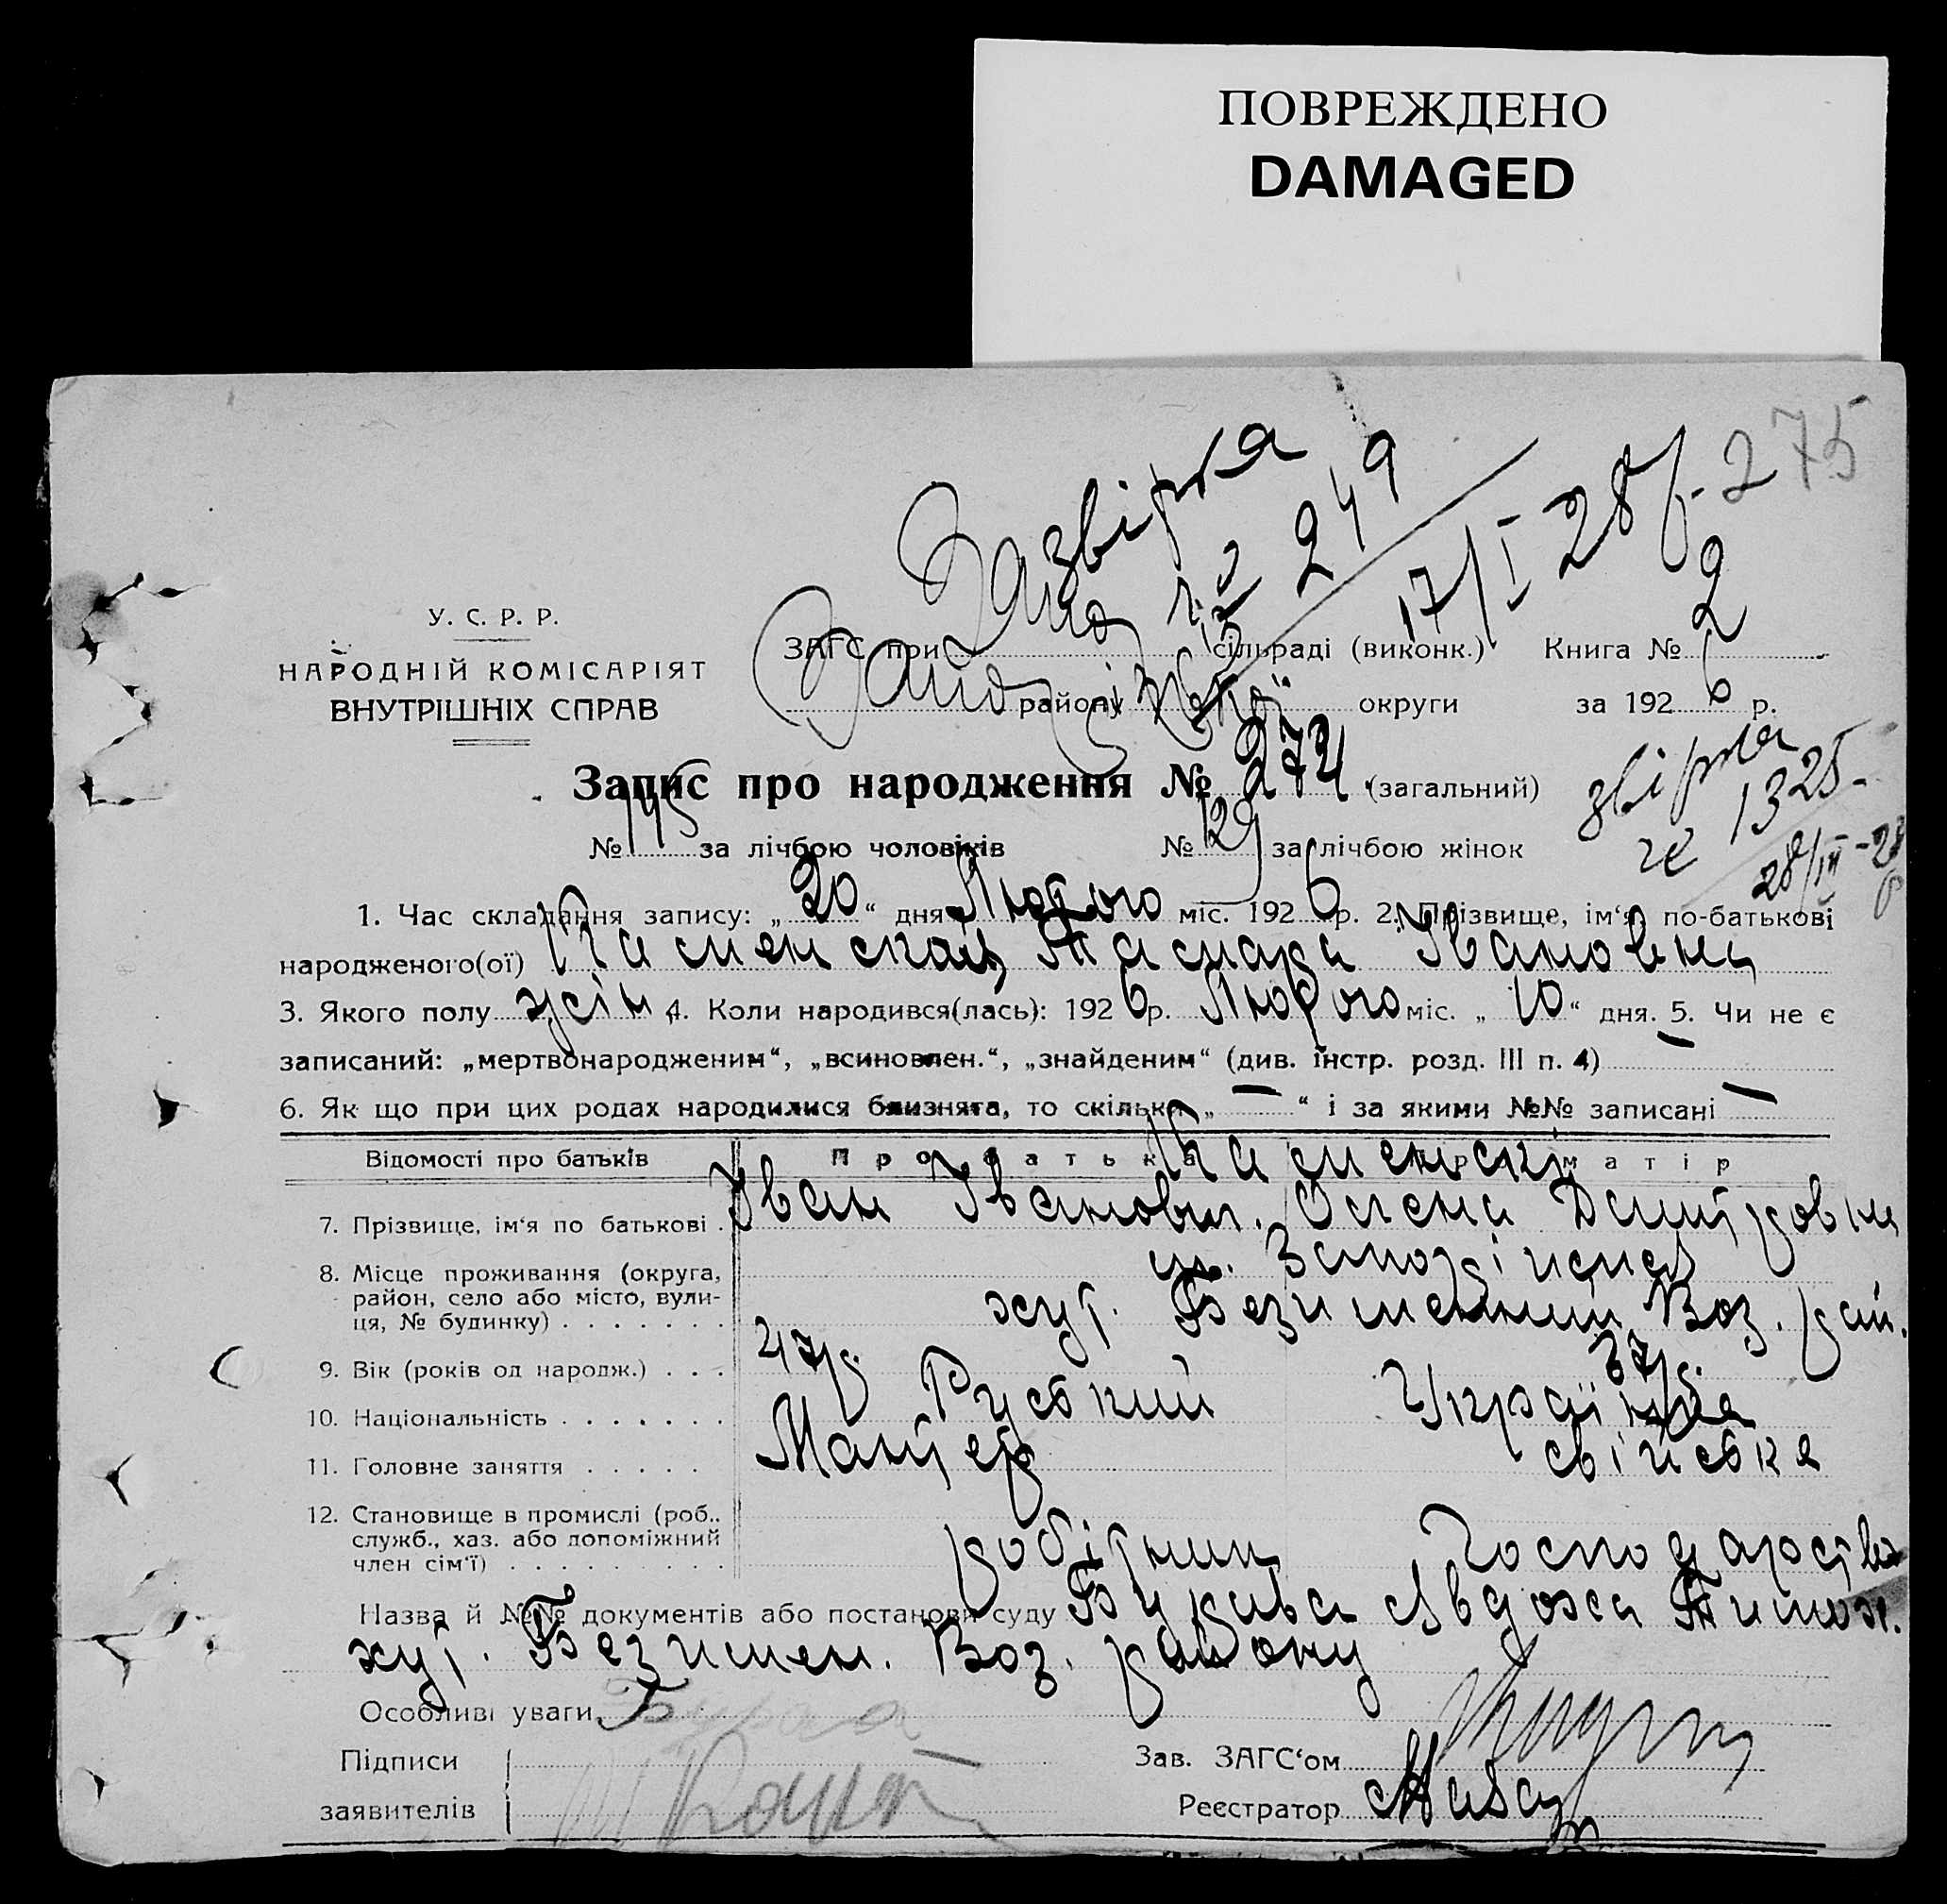 ПОВРЕЖДЕНО
DAMAGED
275
звірка
№ 249
17/I 28р.
У. С. Р. Р.
НАРОДНІЙ КОМІСАРІЯТ
ВНУТРІШНІХ СПРАВ
ЗАГС при сільраді (виконк.) Книга № 2
району округи за 1926 р.
Запис про народження № 274 (загальний)
звірка
№ 1325
28/III-28
№ 145 за лічбою чоловіків № 129 за лічбою жінок
1. Час складання запису: „20“ дня Лютого міс. 1926 р. 2. Прізвище, ім‘я, по-батькові
народженого(ої) Каменская Тамара Івановна
3. Якого полу жін 4. Коли народився(лась): 1926 р. Лютого міс. „10“ дня. 5. Чи не є
записаний: „мертвонародженим“, „всиновлен.“, „знайденим“ (див. інстр. розд. III п. 4) —
6. Як що при цих родах народилися близнята, то скільки „—“ і за якими №№ записані —
Відомості про батьків Про батька Про матір
Каменскі
7. Прізвище, ім‘я по батькові . Іван Іванович. Олена Дмитровна
8. Місце проживання (округа,
район, село або місто, вули-
ця, № будинку) . . . . . . . хут. Безименний Воз. рай.
9. Вік (років од народж.) . . . 47р. 37р.
10. Національність . . . . . . . Руский Українка
11. Головне заняття . . . . . Маляр свійська
12. Становище в промислі (роб..
служб., хаз. або допоміжний
член сім‘ї) . . . . . . . . . робітник Господарства
Назва й №№ документів або постанови суду Авдотя Тимох.
хут. Безимен. Воз. району
Особливі уваги
Підписи Зав. ЗАГС‘ом
заявителів Реєстратор